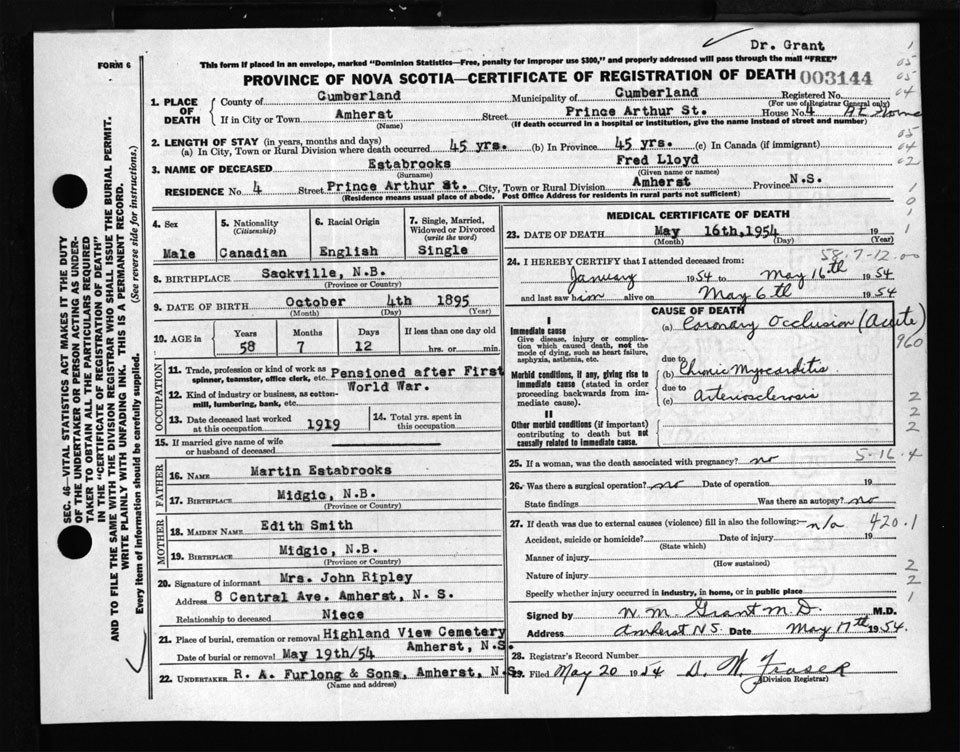 Dr. Grant
FORM 6
This form if placed in an envelope, marked "Dominion Statistics—Free, penalty for improper use $300," and properly addressed will pass through the mail "FREE"
PROVINCE OF NOVA SCOTIA—CERTIFICATE OF REGISTRATION OF DEATH 003144
1. PLACE OF DEATH
County of Cumberland Municipality of Cumberland Registered No.
(For use of Registrar General only)
If in City or Town Amherst Street Prince Arthur St. House No. 4 At Home
(Name) (If death occurred in a hospital or institution, give the name instead of street and number)
2. LENGTH OF STAY (in years, months and days)
(a) In City, Town or Rural Division where death occurred 45 yrs. (b) In Province 45 yrs. (c) In Canada (if immigrant)
3. NAME OF DECEASED Estabrooks Fred Lloyd
(Surname) (Given name or names)
RESIDENCE No. 4 Street Prince Arthur St. City, Town or Rural Division Amherst Province N.S.
(Residence means usual place of abode. Post Office Address for residents in rural parts not sufficient)
4. Sex
Male
5. Nationality
(Citizenship)
Canadian
6. Racial Origin
English
7. Single, Married, Widowed or Divorced
(write the word)
Single
8. BIRTHPLACE Sackville, N.B.
(Province or Country)
9. DATE OF BIRTH October 4th 1895
(Month) (Day) (Year)
10. AGE in Years Months Days If less than one day old
58 7 12 hrs. or min.
OCCUPATION
11. Trade, profession or kind of work as spinner, teamster, office clerk, etc. Pensioned after First
World War.
12. Kind of industry or business, as cotton-mill, lumbering, bank, etc.
13. Date deceased last worked at this occupation 1919
14. Total yrs. spent in this occupation
15. If married give name of wife or husband of deceased
FATHER
16. NAME Martin Estabrooks
17. BIRTHPLACE Midgic, N.B.
(Province or Country)
MOTHER
18. MAIDEN NAME Edith Smith
19. BIRTHPLACE Midgic, N.B.
(Province or Country)
20. Signature of informant Mrs. John Ripley
Address 8 Central Ave. Amherst, N. S.
Relationship to deceased Niece
21. Place of burial, cremation or removal Highland View Cemetery
Amherst, N.S.
Date of burial or removal May 19th/54
22. UNDERTAKER R. A. Furlong & Sons, Amherst, N.S.
(Name and address)
MEDICAL CERTIFICATE OF DEATH
23. DATE OF DEATH May 16th, 1954 19
(Month) (Day) (Year)
58-7-12.00
24. I HEREBY CERTIFY that I attended deceased from:
January 1954 to May 16th 1954
and last saw him alive on May 6th 1954
CAUSE OF DEATH
I
Immediate cause
Give disease, injury or complication which caused death, not the mode of dying, such as heart failure, asphyxia, asthenia, etc.
(a) Coronary Occlusion (Acute)
960
due to
Morbid conditions, if any, giving rise to immediate cause (stated in order proceeding backwards from immediate cause).
(b) Chronic Myocarditis
due to
(c) Arteriosclerosis
II
Other morbid conditions (if important) contributing to death but not causally related to immediate cause.
5-16-4
25. If a woman, was the death associated with pregnancy? no
26. Was there a surgical operation? no Date of operation 19
State findings Was there an autopsy? no
27. If death was due to external causes (violence) fill in also the following:- n/a 420.1
Accident, suicide or homicide? Date of injury 19
(State which)
Manner of injury
(How sustained)
Nature of injury
Specify whether injury occurred in industry, in home, or in public place
Signed by W. M. Grant M.D. M.D.
Address Amherst NS. Date May 17th 1954.
28. Registrar's Record Number
29. Filed May 20 1954 D. W. Fraser
(Division Registrar)
SEC. 46—VITAL STATISTICS ACT MAKES IT THE DUTY
OF THE UNDERTAKER OR PERSON ACTING AS UNDER-
TAKER TO OBTAIN ALL THE PARTICULARS REQUIRED
IN THE "CERTIFICATE OF REGISTRATION OF DEATH"
AND TO FILE THE SAME WITH THE DIVISION REGISTRAR WHO SHALL ISSUE THE BURIAL PERMIT.
WRITE PLAINLY WITH UNFADING INK. THIS IS A PERMANENT RECORD.
Every item of information should be carefully supplied. (See reverse side for instructions.)
1
05
05
04
05
04
02
1
0
1
2
2
2
2
2
1